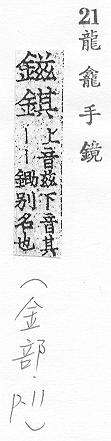 21龍龕手鏡
鎡錤上音玆下音其
丨丨鋤別名也
（金部．p.11）